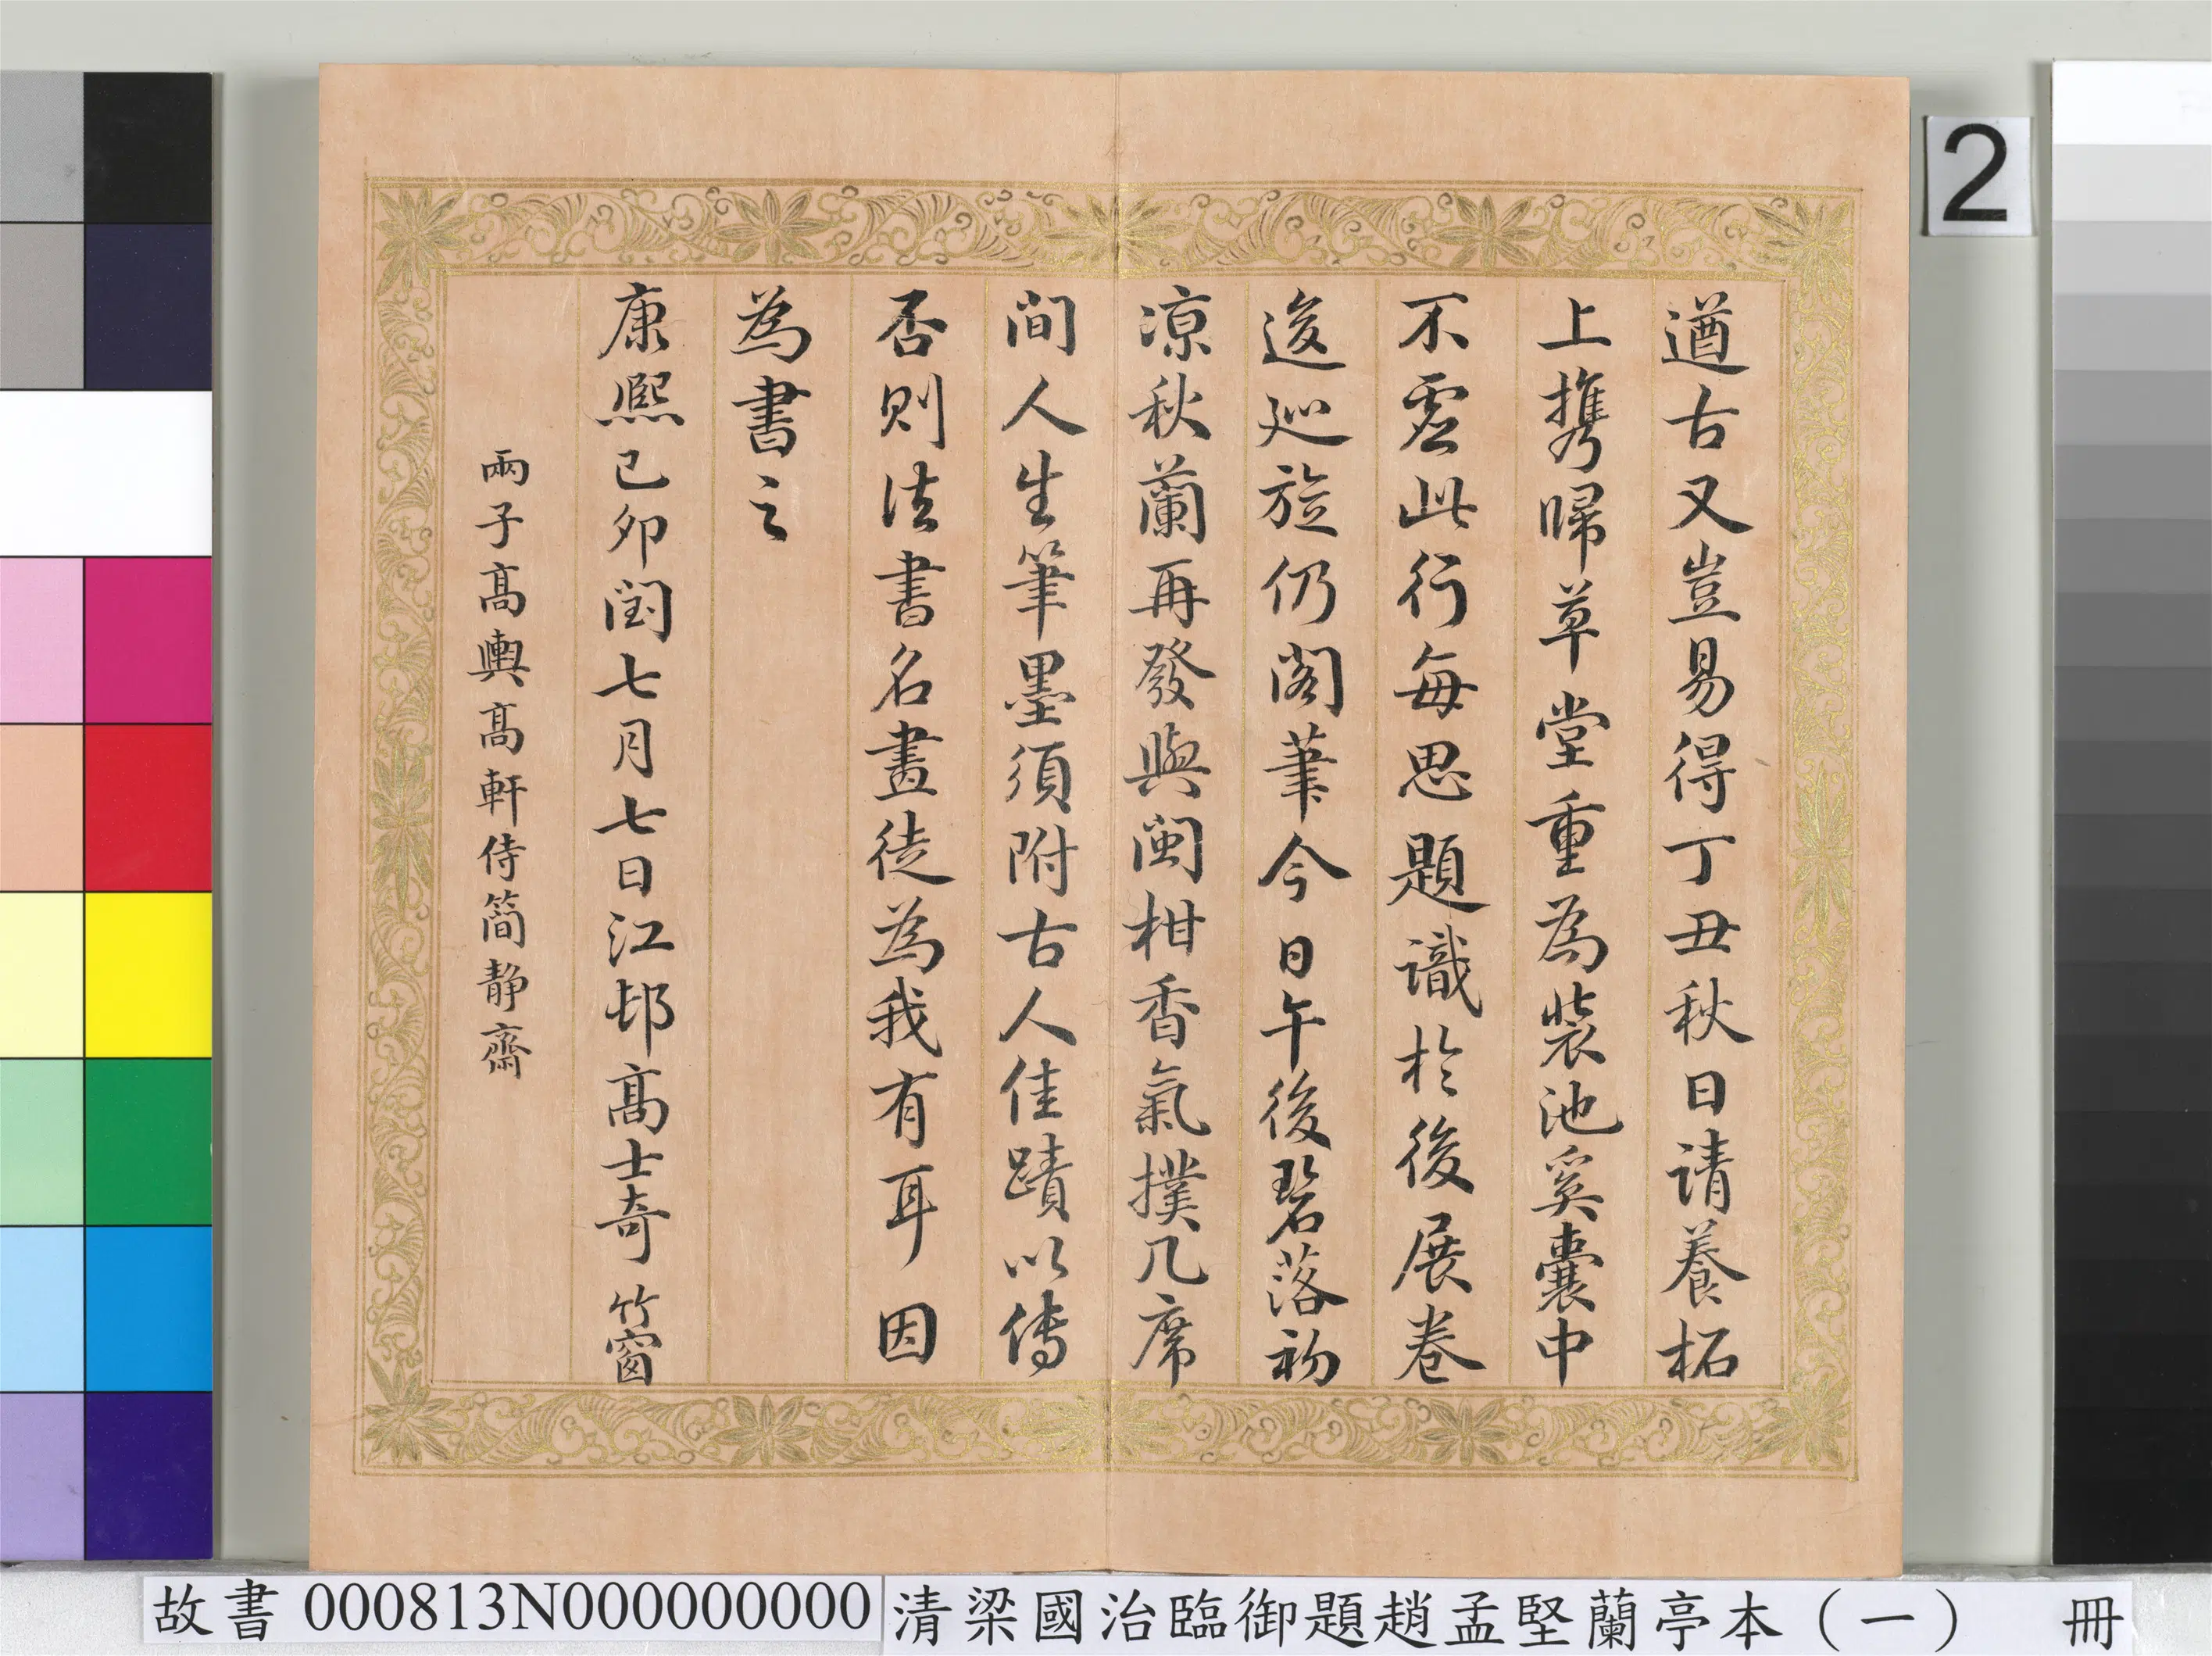 遒古又豈易得丁丑秋日請養柘
上攜歸草堂重為裝池奚囊中
不虛此行每思題識於後展卷
逡巡旋仍閣筆今日午後碧落初
涼秋蘭再發與閩柑香氣撲几席
間人生筆墨須附古人佳蹟以傳
否則法書名畫徒為我有耳因
為書之
康熙己卯閏七月七日江邨高士奇竹窗
兩子高輿高軒侍簡靜齋
2
故書 000813N000000000 清梁國治臨御題趙孟堅蘭亭本（一） 冊